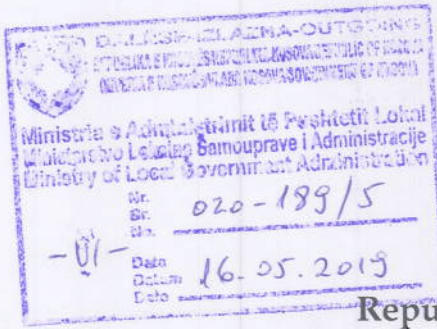 DALËSE-IZLAZNA-OUTGOING
Ministria e Administrimit të Pushtetit Lokal
Ministarstvo Lokalne Samouprave i Administracije
Ministry of Local Government Administration
Nr.
Br. 020-189/5
No.
-01-
Data
Datum 16.05.2019
Date
Repu